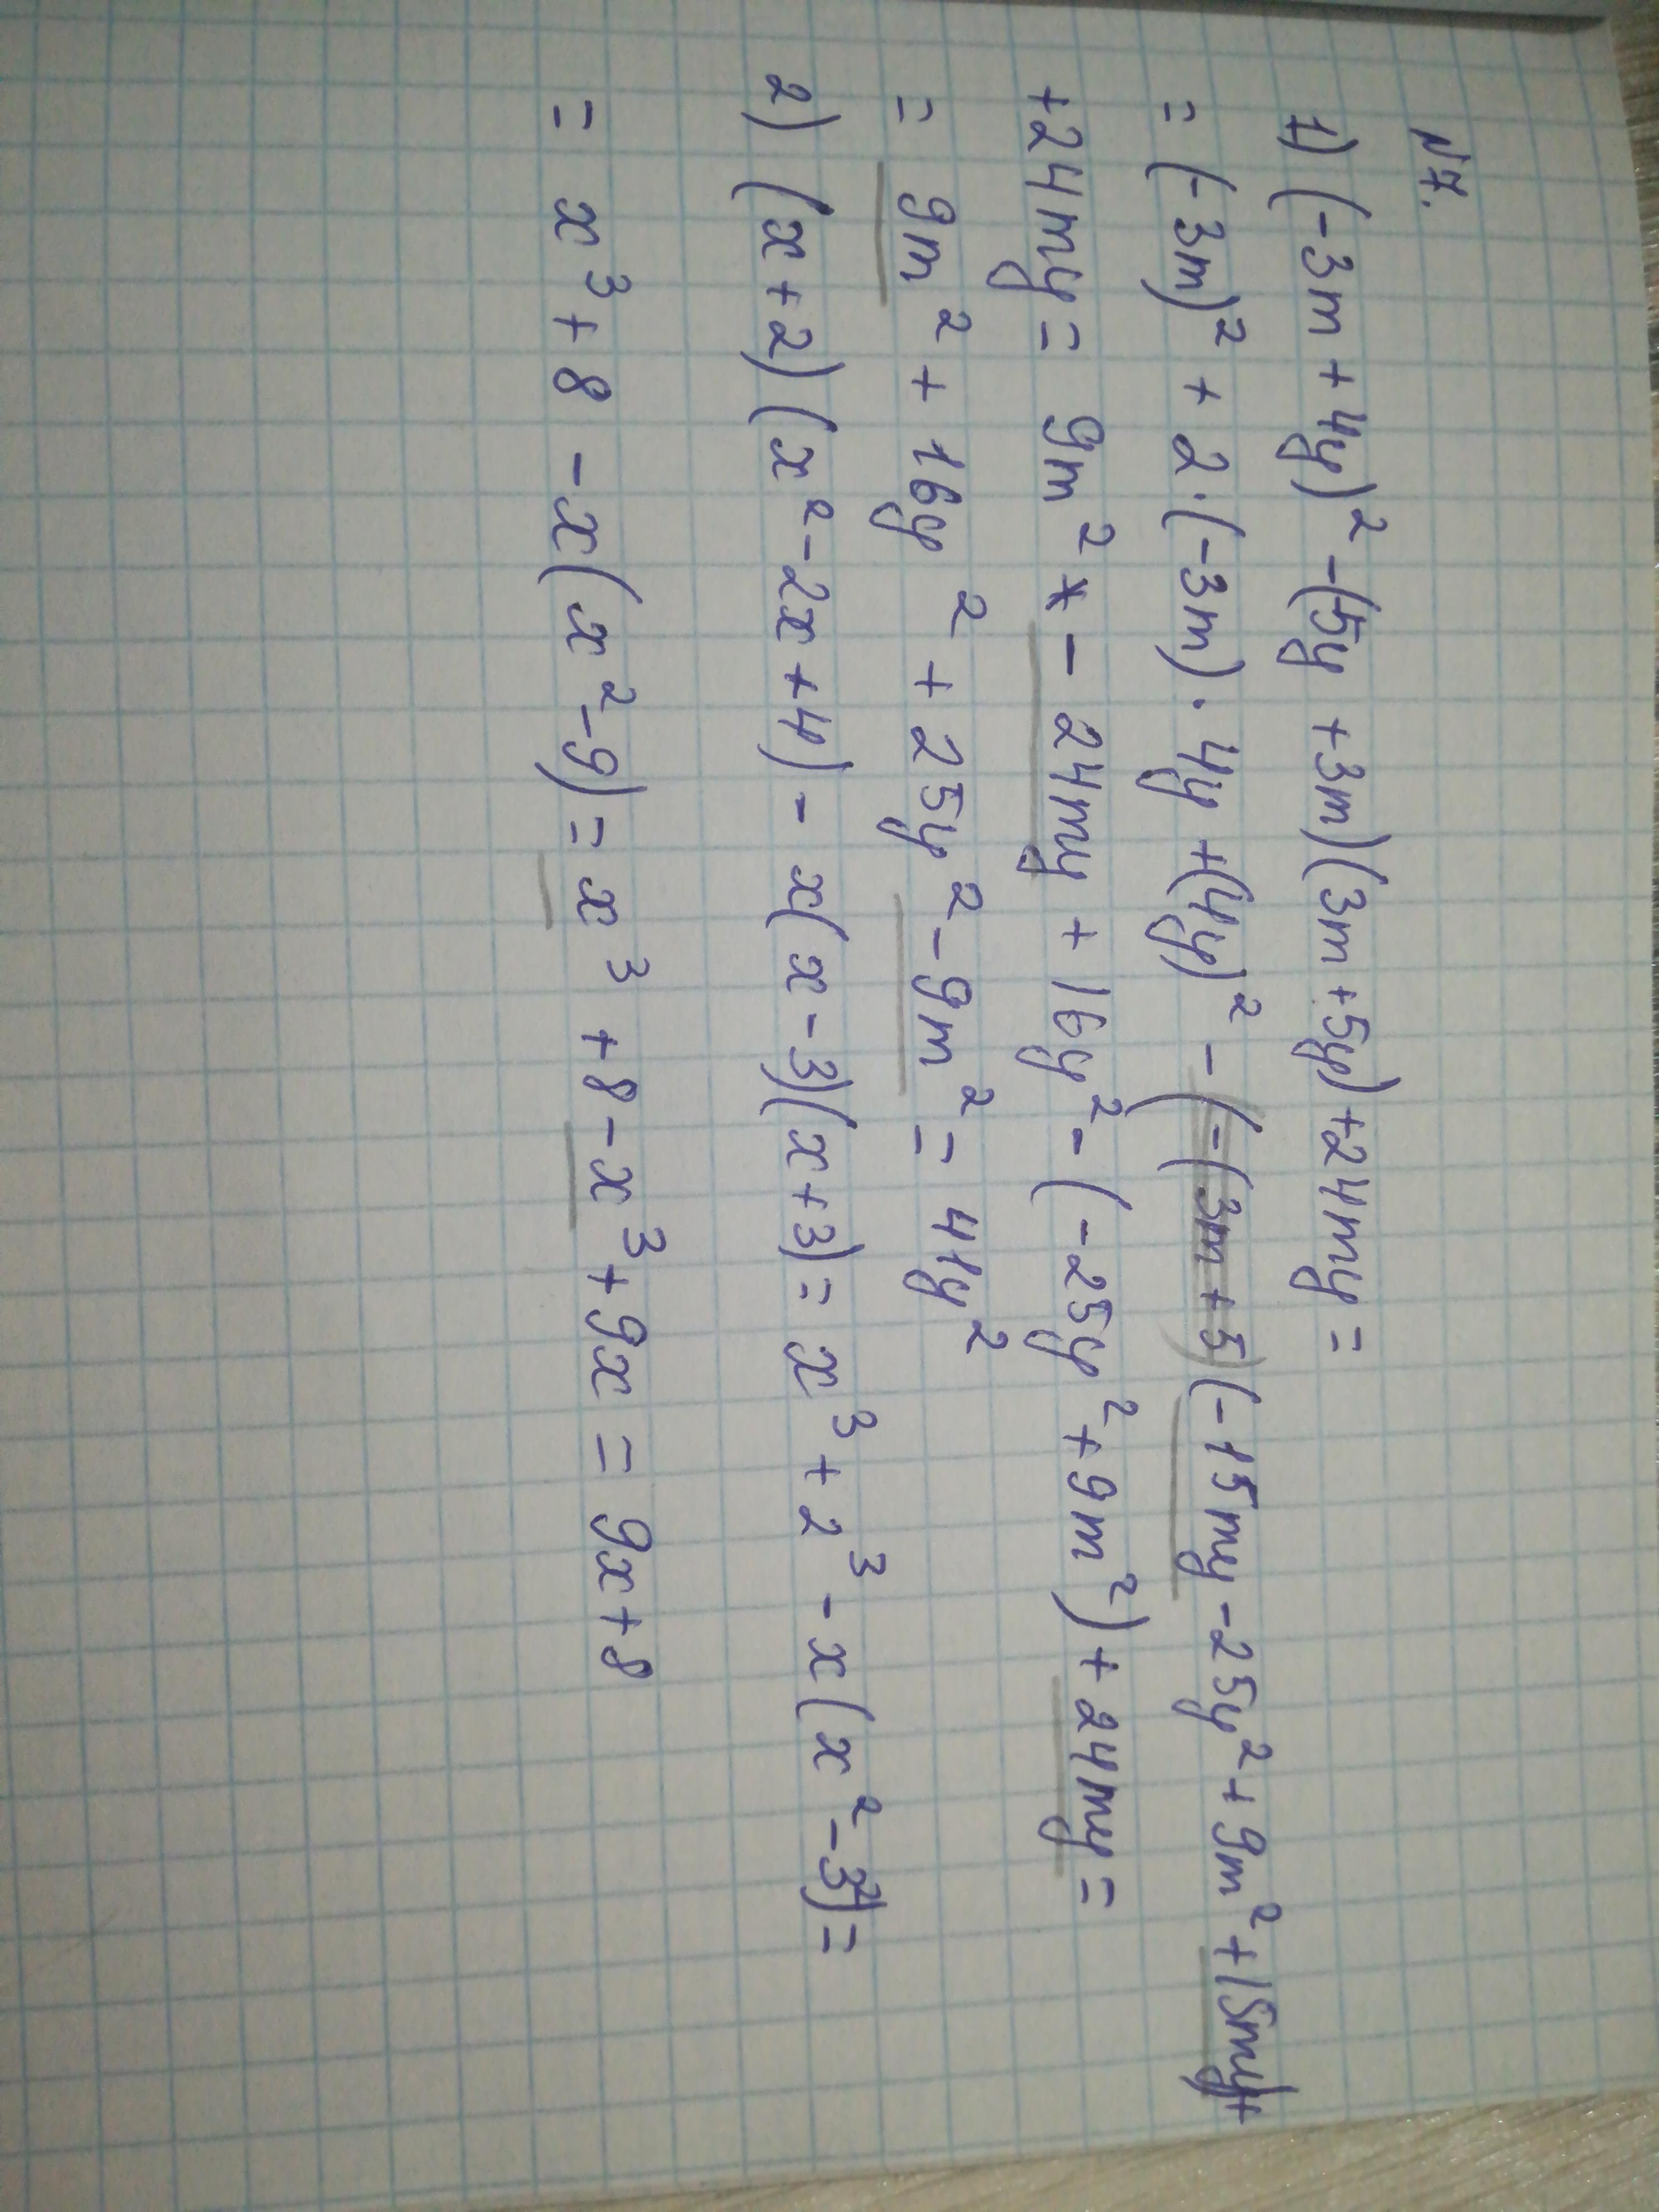 N7.
1) (-3m + 4y)² - (5y + 3m)(3m + 5y) + 24my =
= (-3m)² + 2 · (-3m) · 4y + (4y)² - (-(3m + 5)(-15my - 25y² + 9m² + 15my) +
+ 24my = 9m² - 24my + 16y² - (-25y² + 9m²) + 24my =
= 9m² + 16y² + 25y² - 9m² = 41y²
2) (x + 2)(x² - 2x + 4) - x(x - 3)(x + 3) = x³ + 2³ - x(x² - 3²) =
= x³ + 8 - x(x² - 9) = x³ + 8 - x³ + 9x = 9x + 8